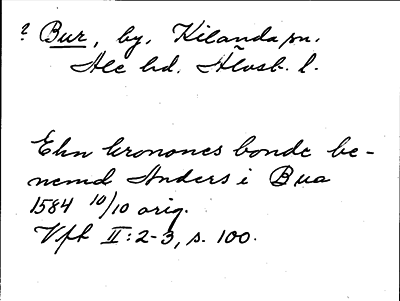 ? Bur, by, Kilanda sn.
Ale hd. Älvsb. l.
Ehn kronones bonde be-
nemd Anders i Bua
1584 10/10 orig.
Vfk II:2-3, s. 100.